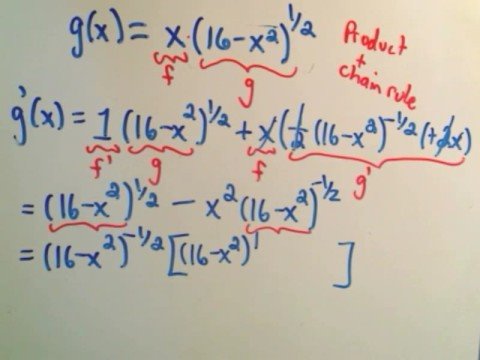 g(x) = x(16-x²)^1/2
f g
Product + chain rule
g'(x) = 1(16-x²)^1/2 + x(1/2(16-x²)^-1/2(+2x)
f' g f g'
= (16-x²)^1/2 - x²(16-x²)^-1/2
= (16-x²)^-1/2[(16-x²)^1 ]